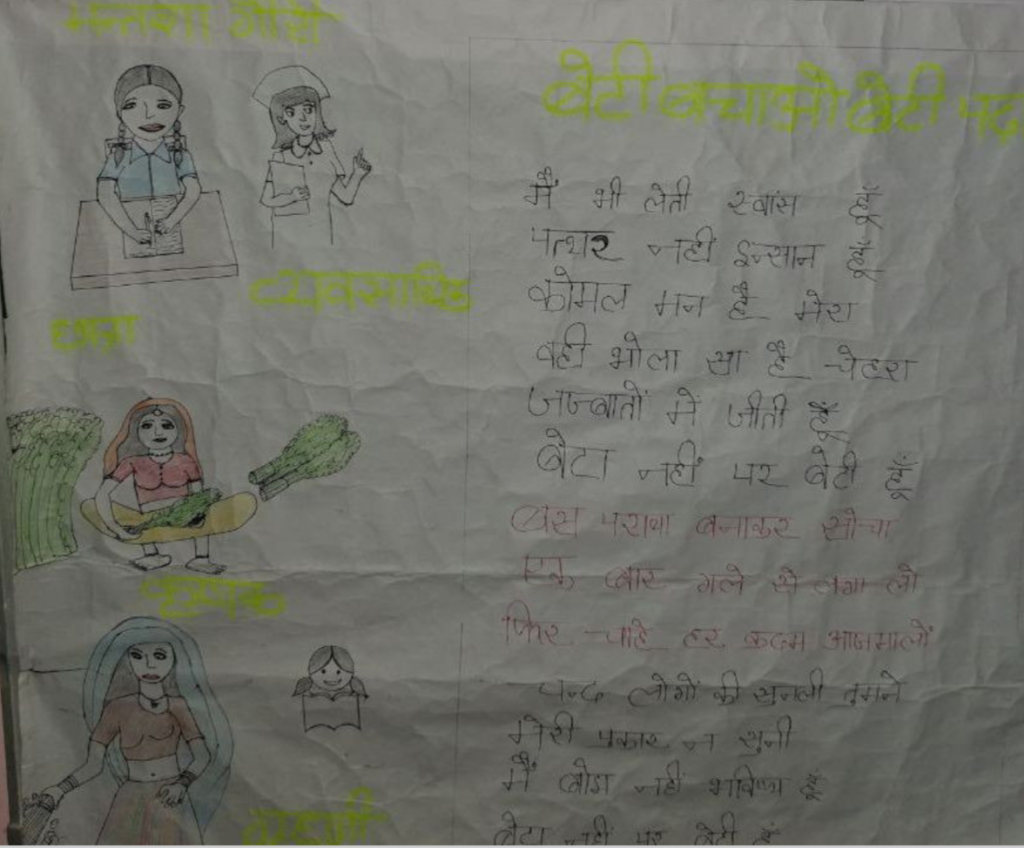 मन्तशा गौरी
बेटी बचाओ बेटी पढ
मैं भी लेती स्वांस हूँ
पत्थर नही इन्सान हूँ
कोमल मन है मेरा
वही भोला सा है चेहरा
जज्बातों में जीती हूँ
बेटा नहीं पर बेटी हूँ
बस पराया बनाकर सोचा
एक बार गले से लगा लो
फिर चाहे हर कदम आजमालों
चन्द लोगों की सुनली तुमने
मेरी पुकार न सुनी
मैं बोझ नहीं भविष्य हूँ
बेटा नहीं पर बेटी हूँ
छात्रा
व्यवसायिक
कृषक